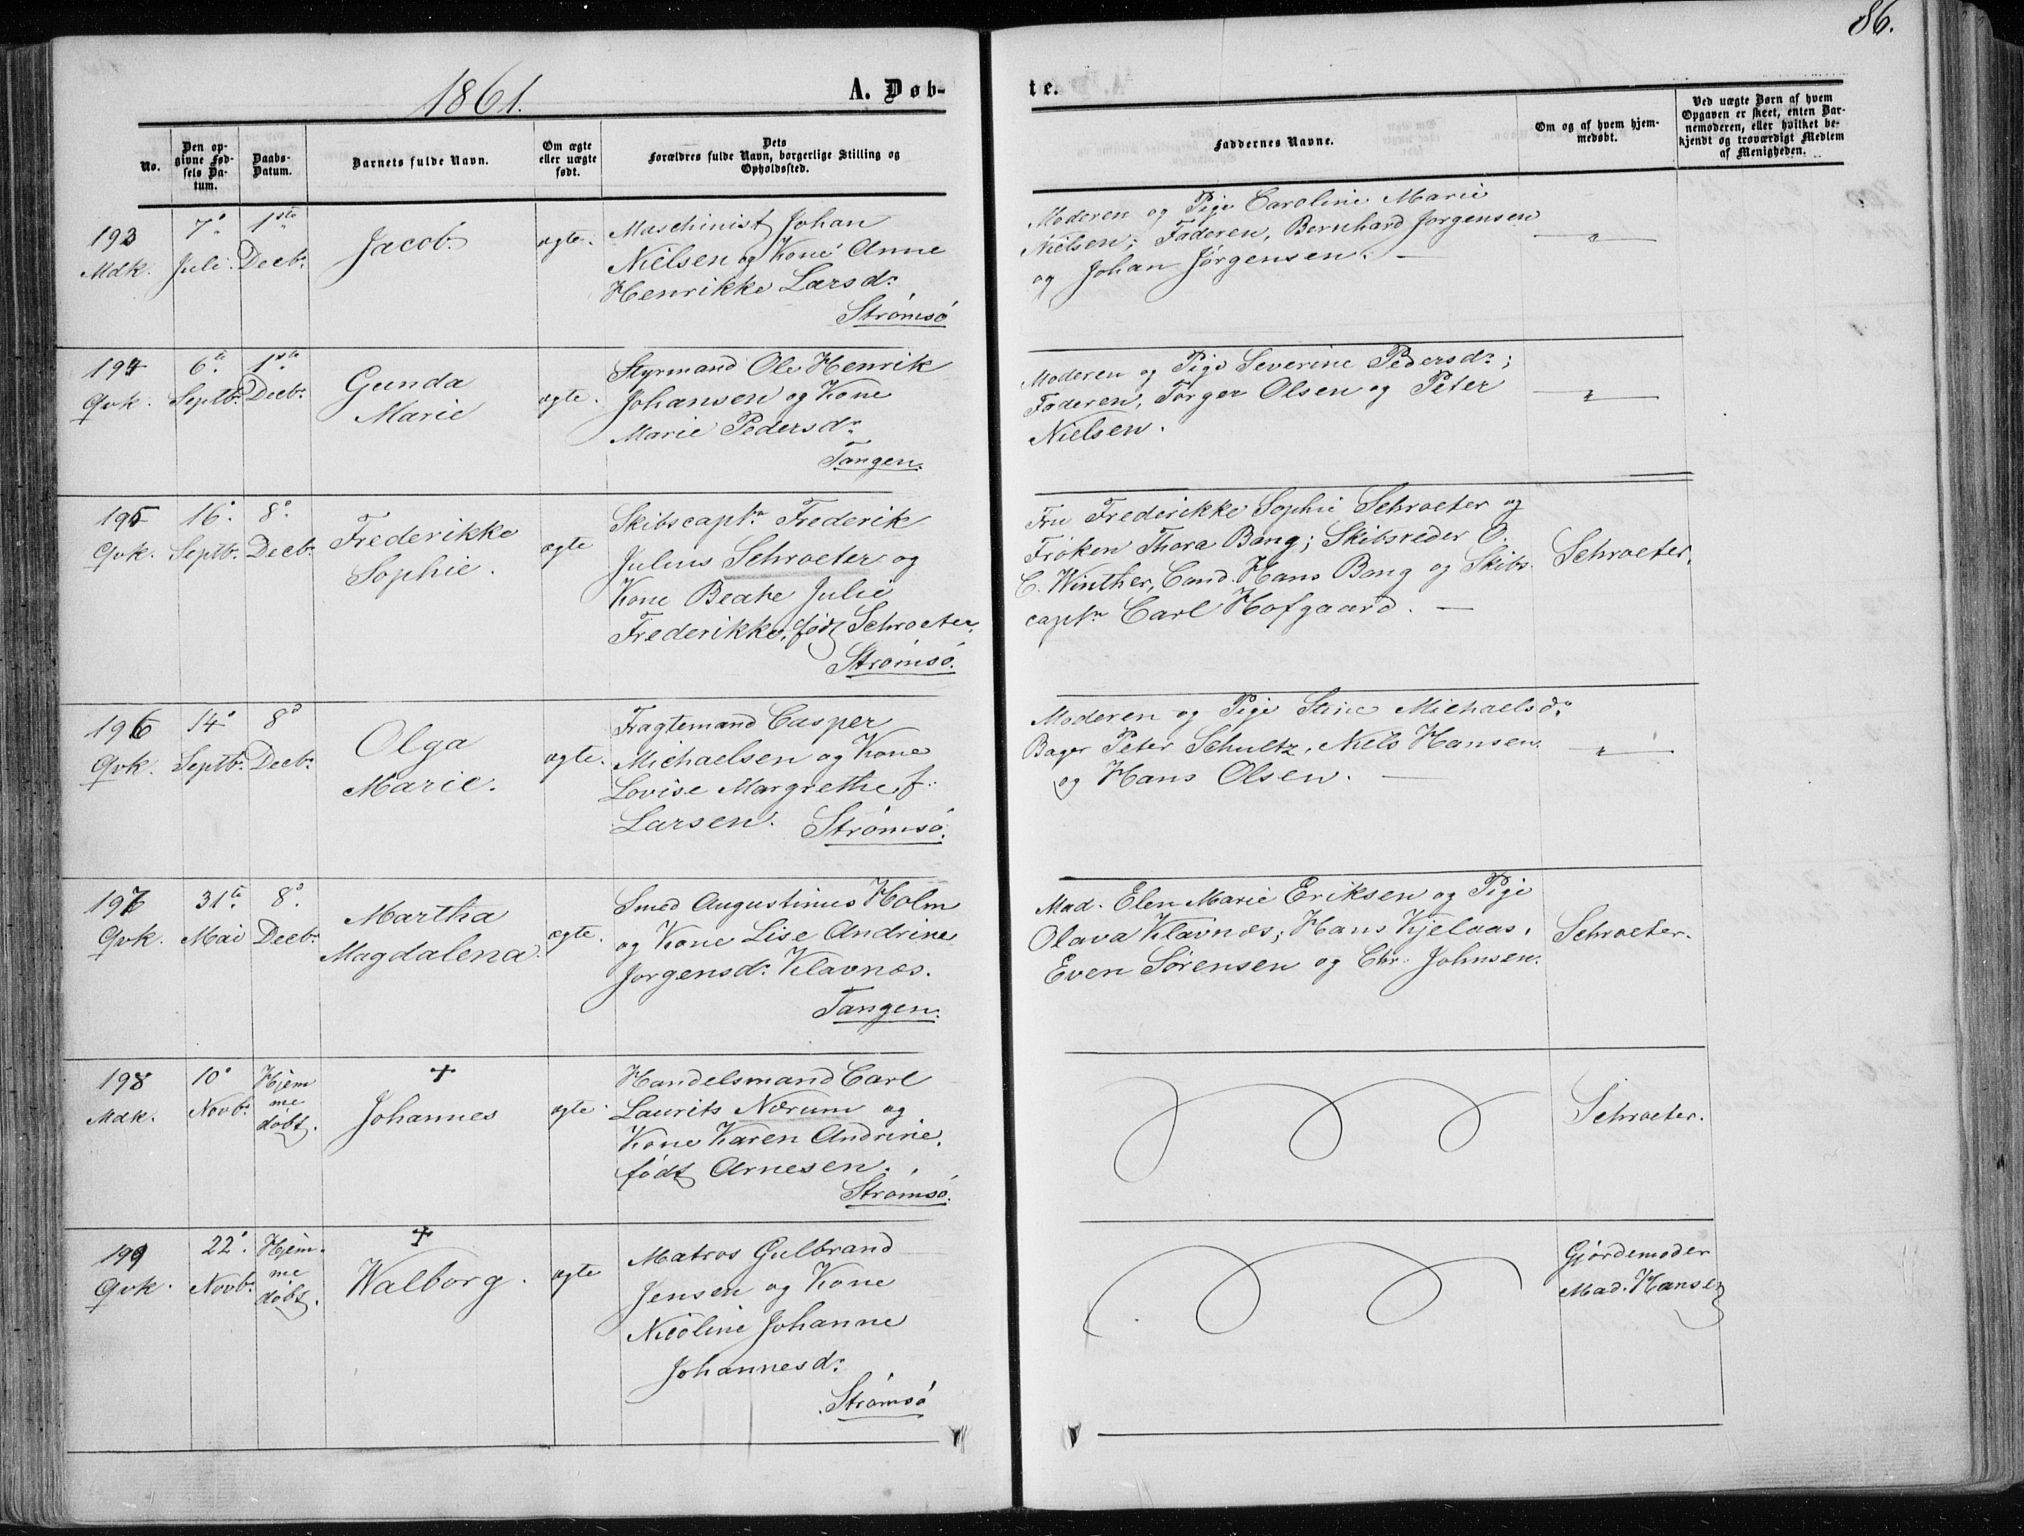 86.
1861.
A. Døb-
te.
No.
Den op-
givne Fød-
sels Da-
tum.
Daabs-
Datum.
Barnets fulde Navn.
Om ægte
eller uægte
født.
Dets
Forældres fulde Navn, borgerlige Stilling og
Opholdssted.
Faddernes Navne.
Om og af hvem hjem-
medøbt.
Ved uægte Børn af hvem
Opgaven er skeet, enten Bar-
nemoderen, eller hvilket be-
kjendt og troværdigt Medlem
af Menigheden.
193
Mdk.
7de
Juli.
1ste
Decbr.
Jacob.
ægte.
Maschinist Johan
Nielsen og Kone Anne
Henrikke Larsdr.
Strømsö
Moderen og Pige Caroline Marie
Nielsen; Faderen, Bernhard Jørgensen
og Johan Jørgensen. —
— " —
194
Qvk.
6te
Septbr.
1ste
Decbr.
Gunda
Marie
ægte.
Styrmand Ole Henrik
Johansen og Kone
Marie Pedersdr.
Tangen.
Moderen og Pige Severine Pedersdr;
Faderen, Torger Olsen og Peter
Nielsen.
— " —
195
Qvk.
16de
Septbr.
8de
Decbr.
Frederikke
Sophie.
ægte
Skibscaptn Frederik
Julius Schroeter og
Kone Beate Julie
Frederikke, født Schroeter.
Strømsö.
Fru Frederikke Sophie Schroeter og
Frøken Thora Bang; Skibsreder C.
C. Winther, Cand. Hans Bang og Skibs
captn Carl Hofgaard. —
Schroeter.
196
Qvk.
14de
Septbr.
8de
Decbr.
Olga
Marie.
ægte.
Fragtemand Casper
Michaelsen og Kone
Lovise Margrethe f:
Larsen. Strømsö.
Moderen og Pige Stine Michaelsdr.
Bager Peter Schultz, Niels Hansen
og Hans Olsen. —
— " —
197
Qvk.
31te
Mai
8de
Decbr.
Martha
Magdalena.
ægte.
Smed Augustinus Holm
og Kone Lise Andrine
Jørgensdr. Klavnæs.
Tangen.
Mad. Elen Marie Eriksen og Pige
Olava Klavnæs; Hans Kjelaas,
Even Sørensen og Chr. Johnsen.
Schroeter.
198
Mdk.
10de
Novbr.
Hjem
me
døbt.
+
Johannes
ægte.
Handelsmand Carl
Laurits Nærum og
Kone Karen Andrine,
født Arnesen.
Strømsö.
Schroeter.
199
Qvk.
22de
Novbr.
Hjem-
me
døbt.
+
Walborg.
ægte
Matros Gulbrand
Jensen og Kone
Nicoline Johanne
Johannesdr.
Strømsö
Gjordemoder
Mad. Hansen